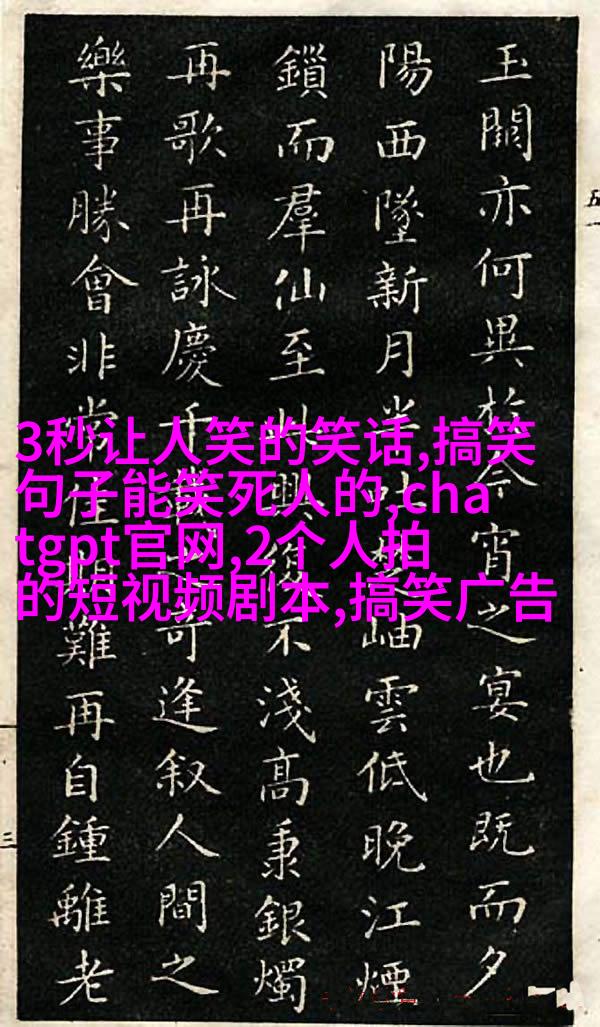 玉闕亦何異於今宵之宴也既而夕
陽西墜新月半吐楚岫雲低晚江煙
鎖而羣仙至此興不淺高秉銀燭
再歌再詠慶千載奇逢叙人間之
樂事勝會非常佳期難再自鍾離老
3秒让人笑的笑话,搞笑
句子能笑死人的,cha
tgpt官网,2个人拍
的短视频剧本,搞笑广告
五一
三